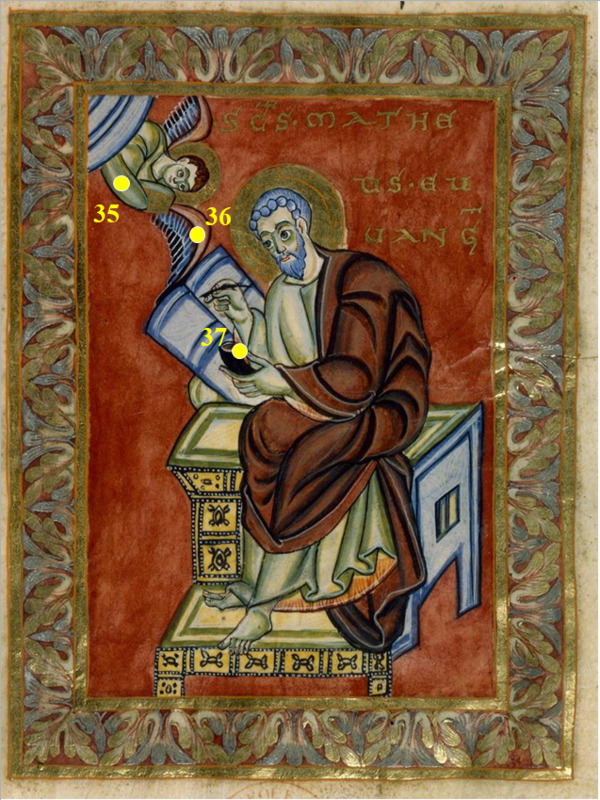 SCS·MATHE
US·EU
UANG
35
36
37